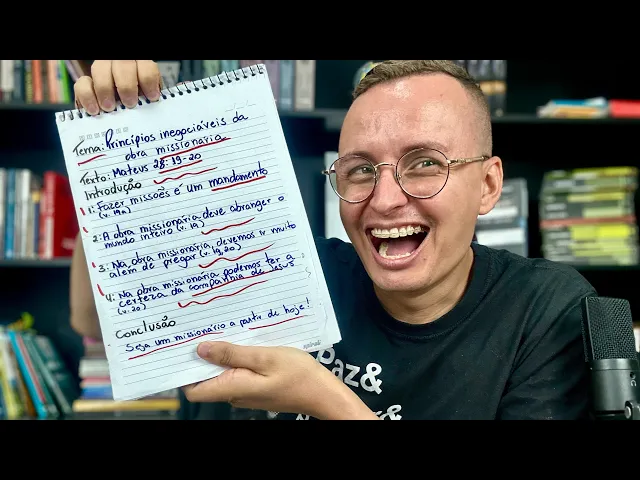 Tema: Princípios inegociáveis da
obra missionária
Texto: Mateus 28:19-20
Introdução
1: Fazer missões é um mandamento
(v. 19a)
2: A obra missionária deve abranger o
mundo inteiro (v. 19)
3: Na obra missionária, devemos ir muito
além de pregar (v. 19,20)
4: Na obra missionária podemos ter a
certeza da companhia de Jesus
(v. 20)
Conclusão
Seja um missionário a partir de hoje!
spiral
Paz&
&